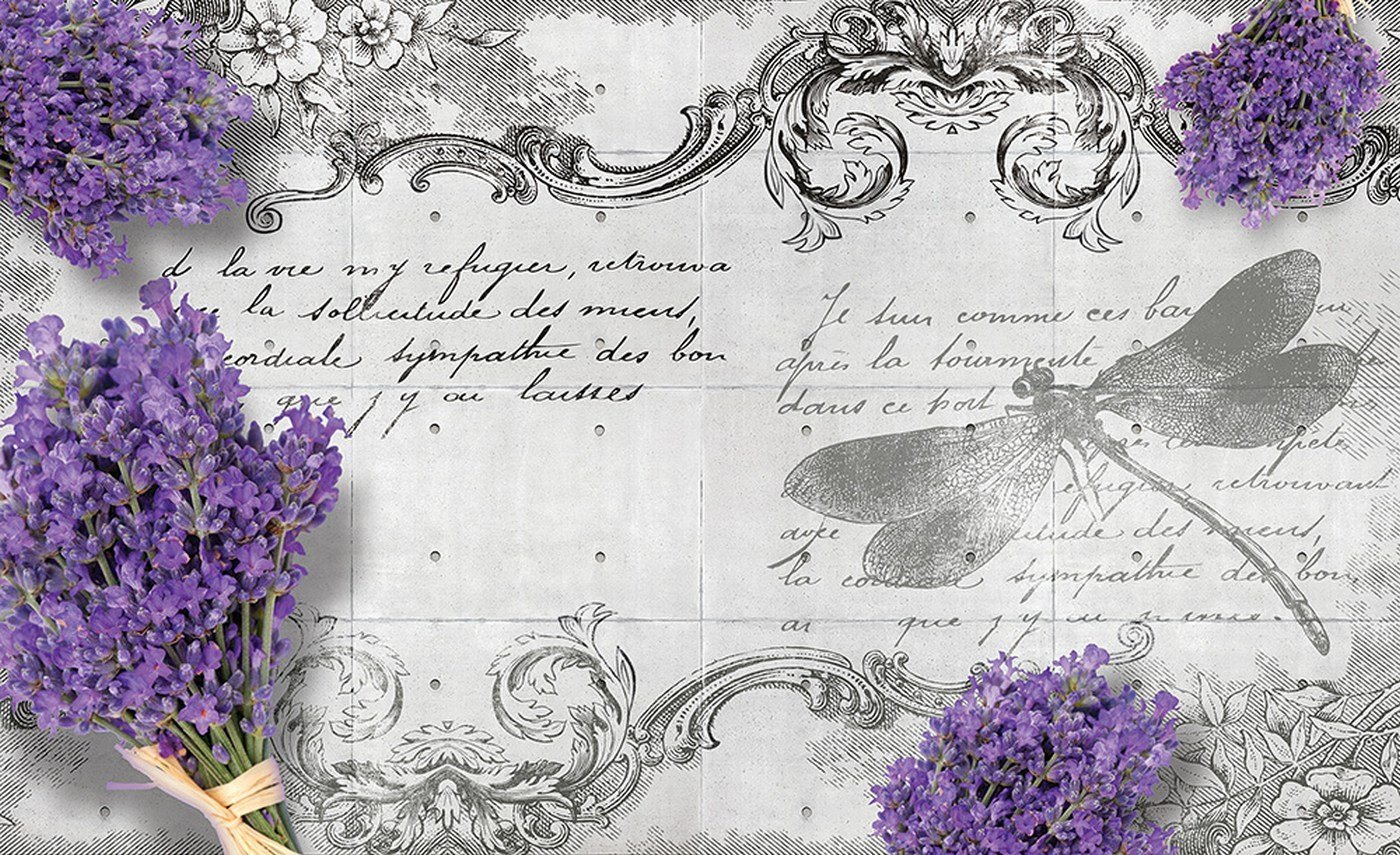 d la vie my refugier, retrouva
la sollicitude des miens,
cordiale sympathie des bon
que j'y ai laisses
Je suis comme ces bar
après la tourmente
dans ce port
refugier retrouvant
avec itude des miens,
la sympathie des bon,
ai que j'y ai